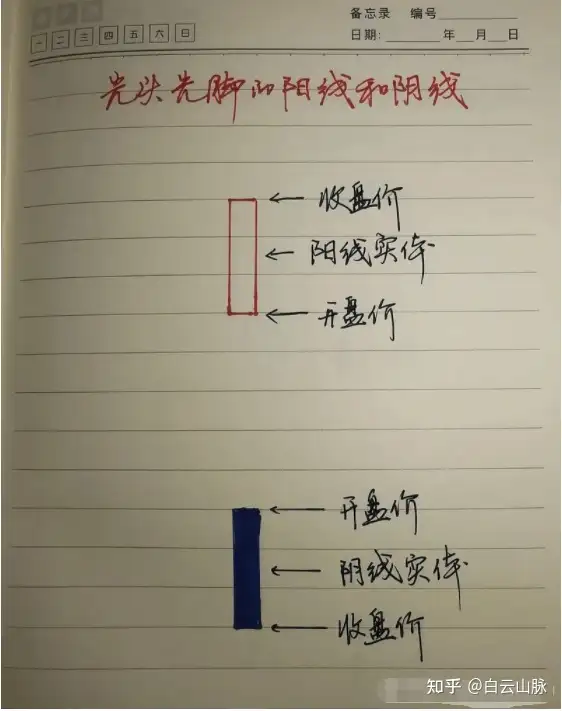 备忘录 编号
一 二 三 四 五 六 日
日期: 年 月 日
光头光脚的阳线和阴线
收盘价
阳线实体
开盘价
开盘价
阴线实体
收盘价
知乎 @白云山脉